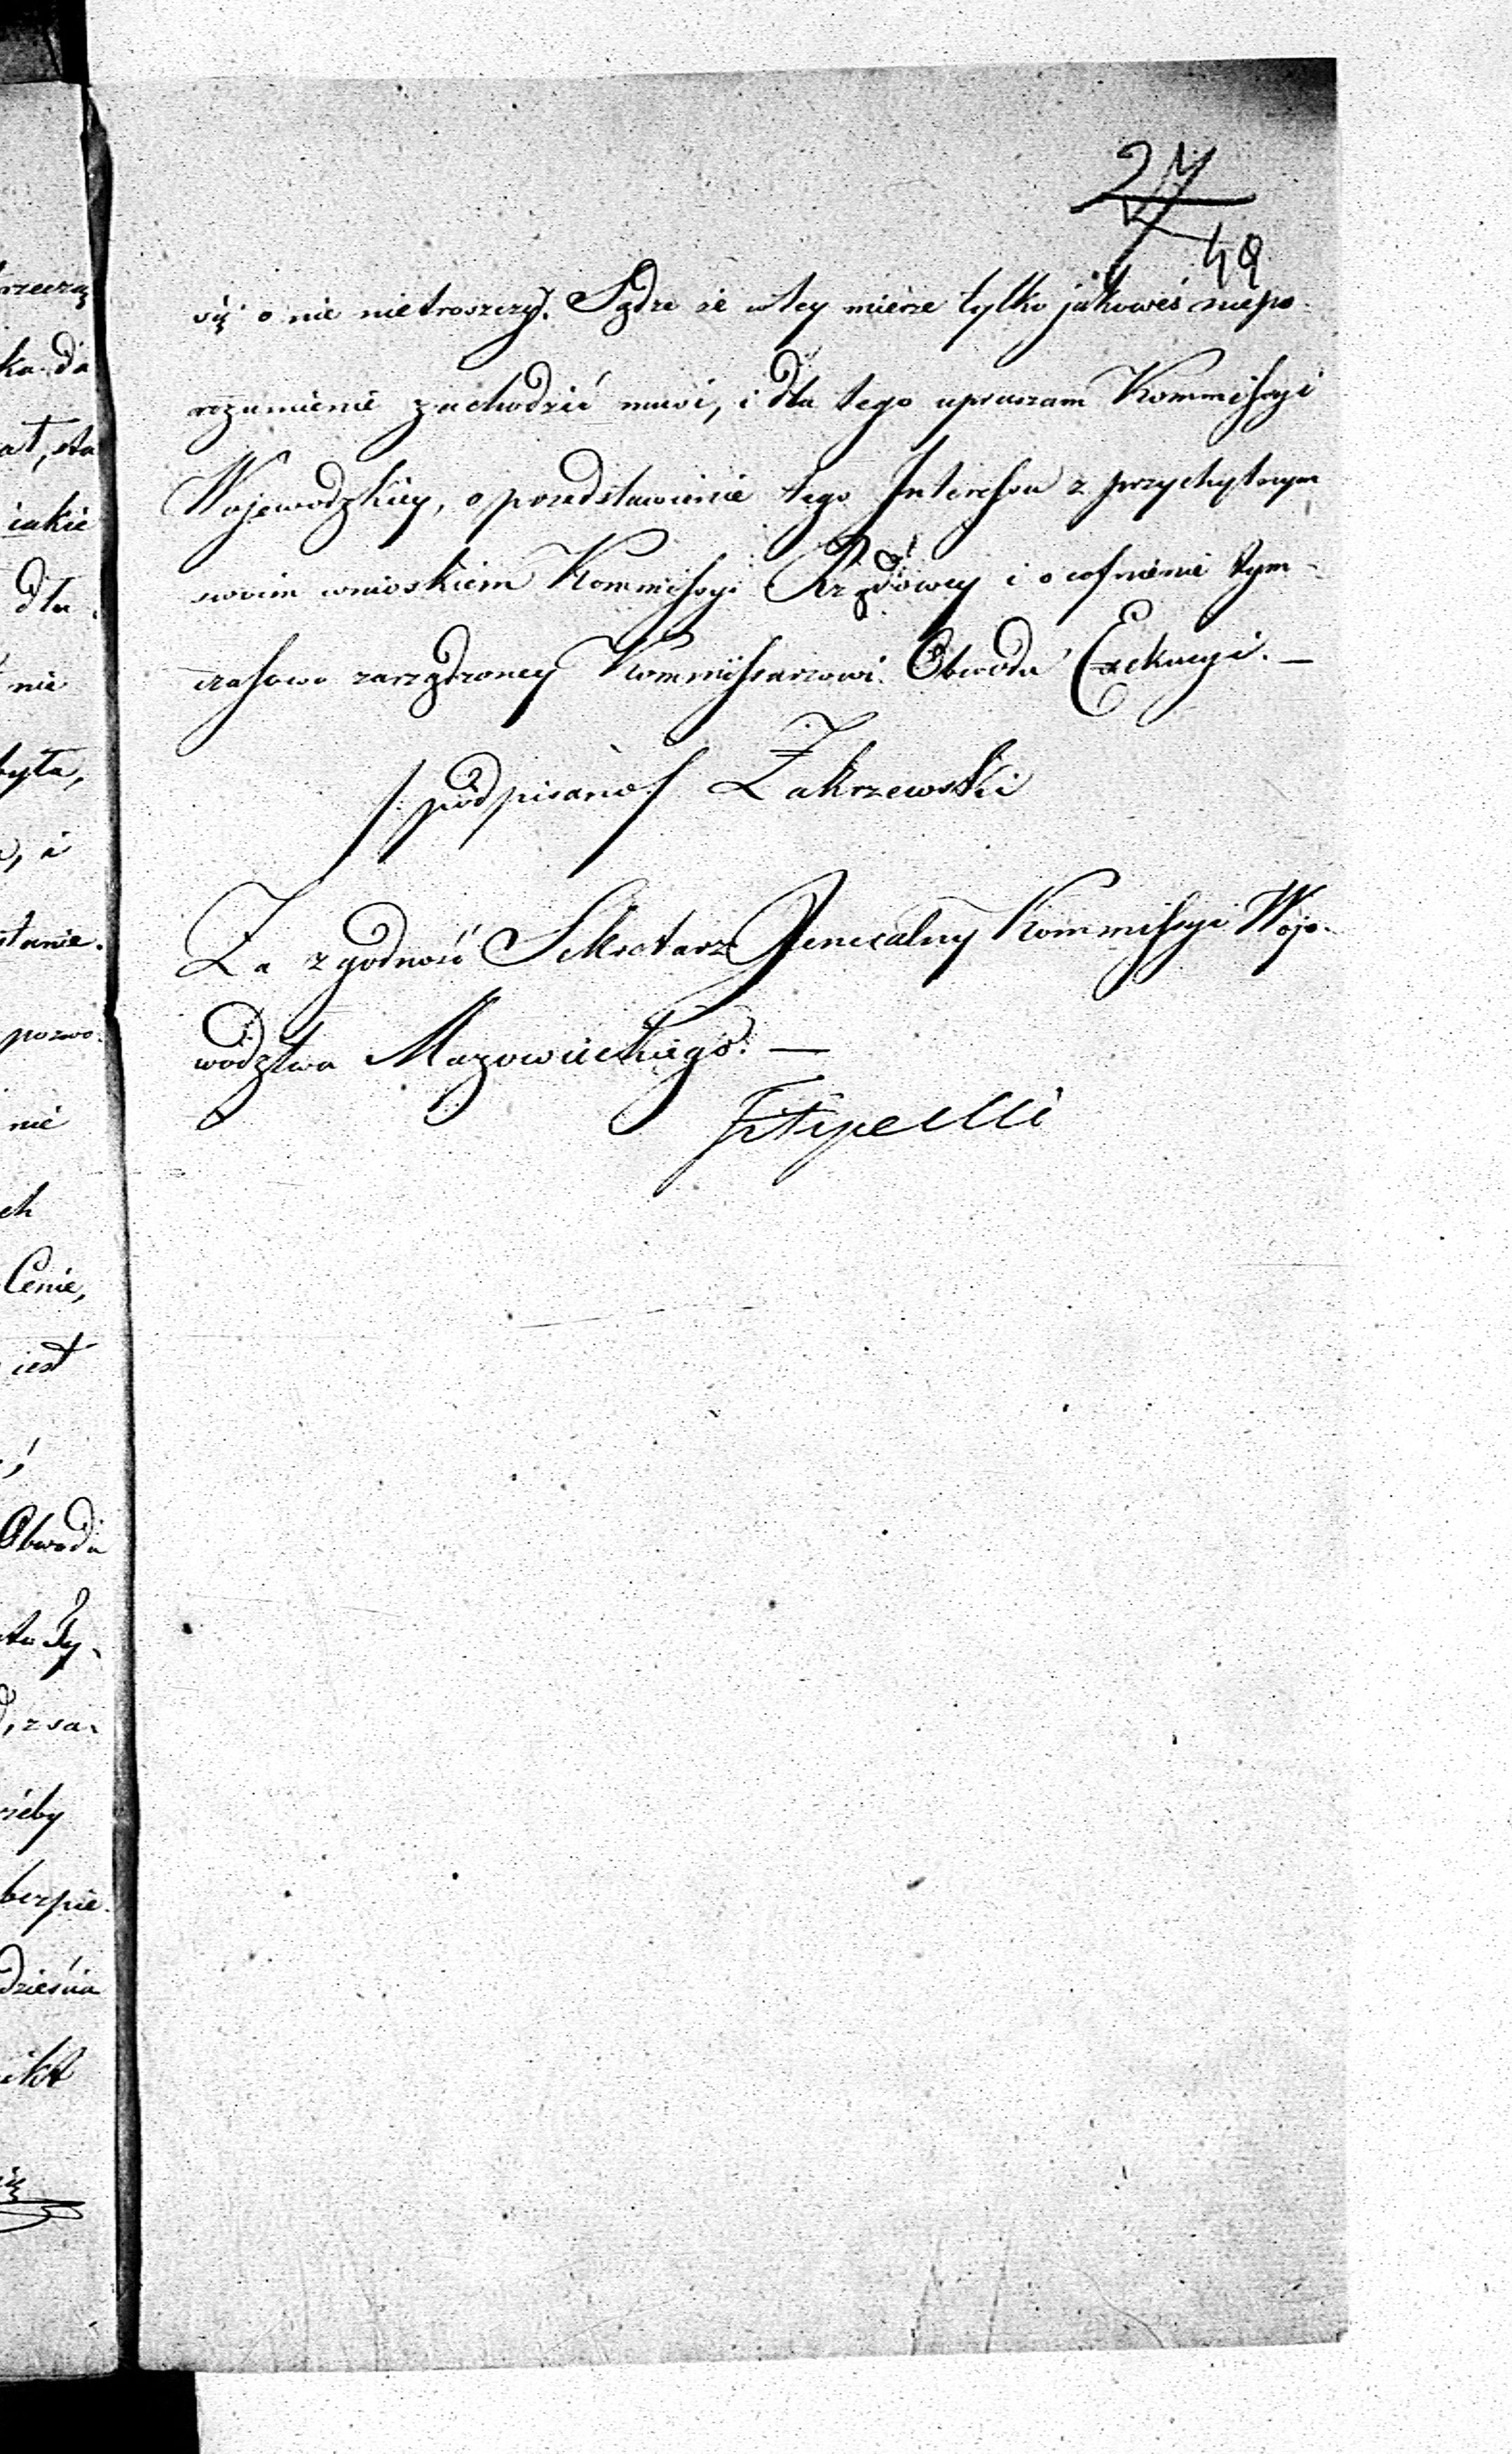 49
się o nie nietroszczył. Sądzę że w tey mierze tylko jakoweś niepo-
rozumienie zachodzić musi, i dla tego upraszam Kommissyi
Wojewodzkiey, o przedstawienie tego Interessu z przychylnym
swoim wnioskiem Kommissyi Rządowey i o cofnienie tym-
czasowo zarządzoney Kommissarzowi Obwodu Exekucyi. —
/:podpisano/ Zakrzewski
Za zgodność Sekretarz Jeneralny Kommissyi Woje-
wodztwa Mazowieckiego. —
Filipecki
rzeczą
ka da
iakie
dla
nie
była,
, i
stanie.
pozwo-
nie
ch
Cenie,
iest
Obwodu
, z sa-
żeby
bezpie-